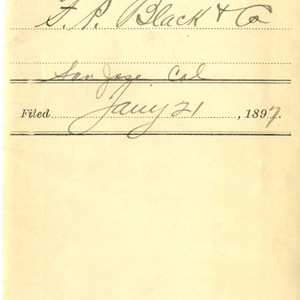 F. P. Black & Co
San Jose Cal
Filed Jany 21, 1897.